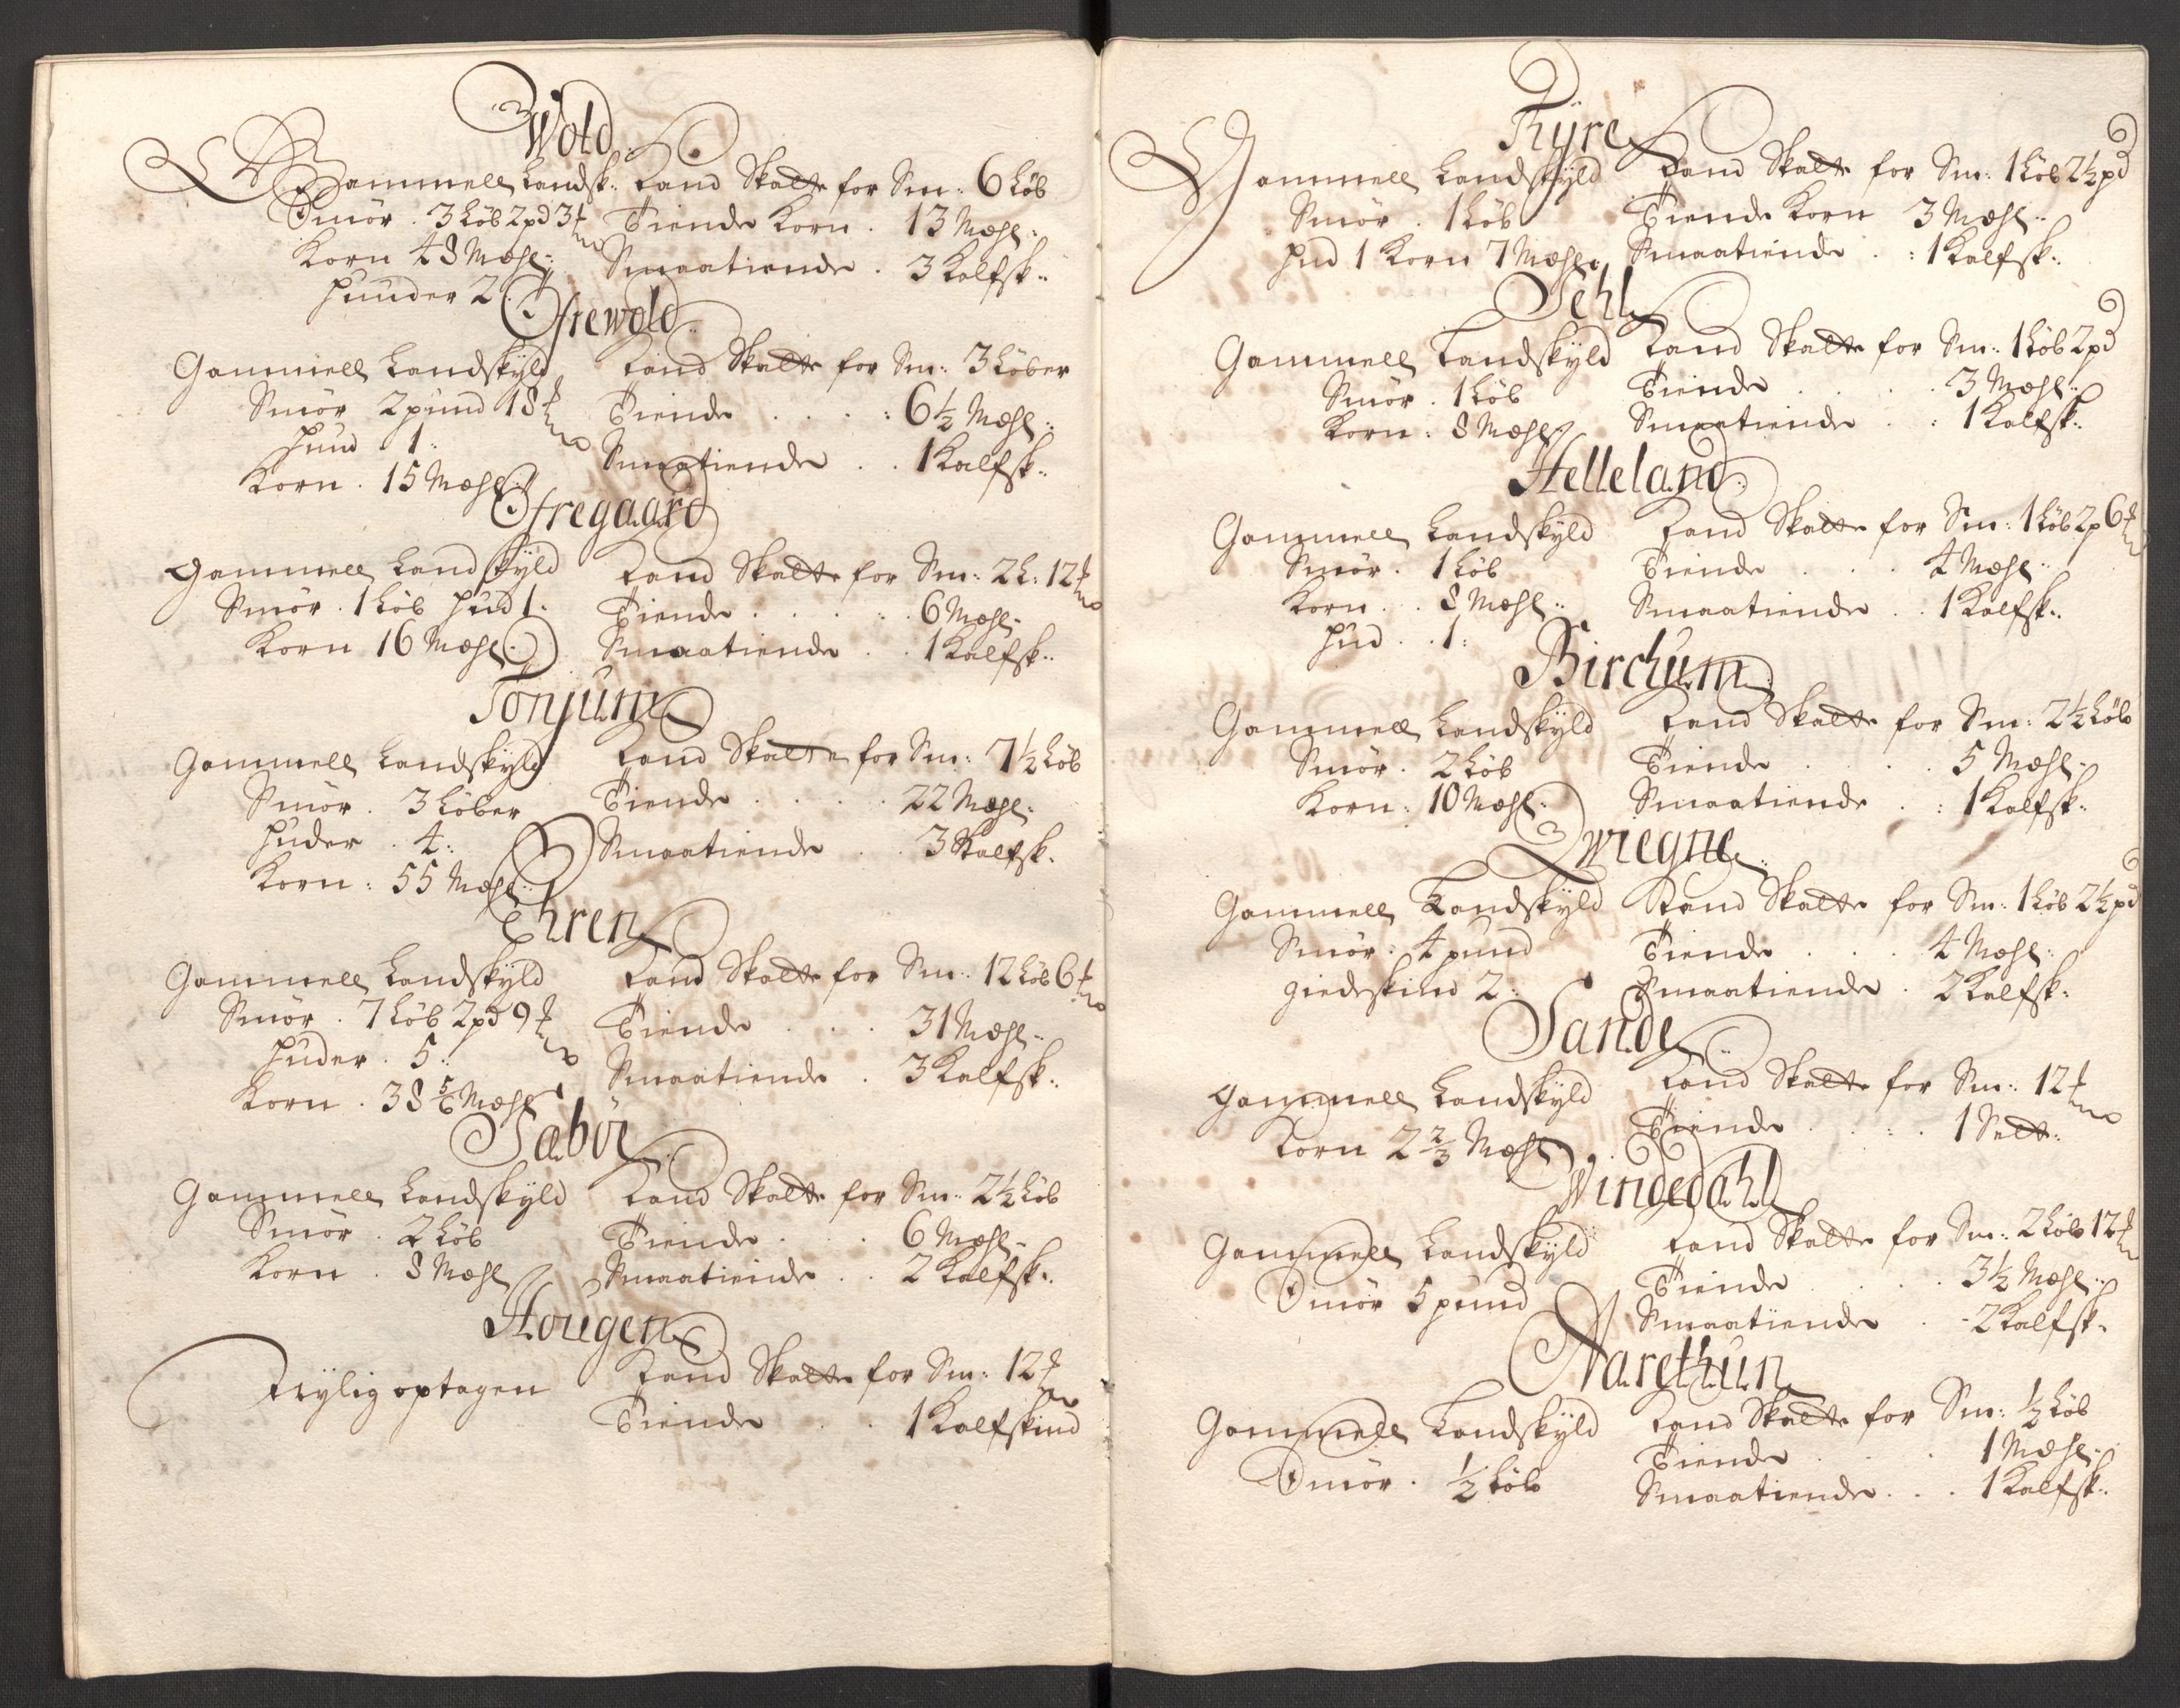 Wold
Gammell Landsk: Land Skatte for Sm: 6 Løb
Smør . 3 Løb 2 pd 3 ℔ Tiende Korn . 13 Mæhl:
Korn 48 Mæhl: Smaatiende . 3 Kalfsk:
Huuder 2
Ofrewold
Gammell Landskÿld Land Skatte for Sm: 3 Løber
Smør 2 pund 18 ℔ Tiende . . . : 6 ½ Mæhl:
Huud 1: Smaatiende . . 1 Kalfsk:
Korn . 15 Mæhl:
Ofregaard
Gammell Landskÿld Land Skatte for Sm: 2 L: 12 ℔
Smør . 1 Løb Hud 1. Tiende . . . . 6 Mæhl:
Korn 16 Mæhl: Smaatiende . . 1 Kalfsk:
Tønjum
Gammell Landskÿld Land Skatte for Sm: 7 ½ Løb
Smør . 3 Løber Tiende . . . . 22 Mæhl:
Huder . 4: Smaatiende . . 3 Kalfsk.
Korn : 55 Mæhl:
Ehren
Gammell Landskÿld Land Skatte for Sm: 12 Løb 6 ℔
Smør . 7 Løb 2 pd 9 ℔ Tiende . . . 31 Mæhl:
Huder . 5: Smaatiende . 3 Kalfsk:
Korn . 38 5/6 Mæhl
Sæbøe
Gammell Landskÿld Land Skatte for Sm: 2 ½ Løb
Smør . 2 Løb Tiende . . . 6 Mæhl:
Korn . 8 Mæhl Smaatiende . . 2 Kalfsk:
Hougen
Nylig optagen Land Skatte for Sm: 12 ℔
Tiende . . 1 Kalfskind
Thÿre
Gammell Landskÿld Land Skatte for Sm: 1 Løb 2 ½ pd
Smør . 1 Løb Tiende Korn 3 Mæhl:
Hud 1 Korn 7 Mæhl: Smaatiende . : 1 Kalfsk:
Sehl
Gammell Landskÿld Land Skatte for Sm: 1 Løb 2 pd
Smør . 1 Løb Tiende . . . . 3 Mæhl:
Korn : 8 Mæhl: Smaatiende . : 1 Kalfsk:
Helleland
Gammell Landskÿld Land Skatte for Sm: 1 Løb 2 p 6 ℔
Smør . 1 Løb Tiende . . . 4 Mæhl:
Korn . . 8 Mæhl: Smaatiende . . 1 Kalfsk:
Hud . . 1:
Birchum
Gammell Landskÿld Land Skatte for Sm: 2 ½ Løb
Smør . 2 Løb Tiende . . . . 5 Mæhl:
Korn : 10 Mæhl: Smaatiende . : 1 Kalfsk:
Qwiegne
Gammell Landskÿld Land Skatte for Sm: 1 Løb 2 ½ pd
Smør : 4 pund Tiende . . . 4 Mæhl:
Giedeskind 2: Smaatiende . 2 Kalfsk:
Sande
Gammell Landskÿld Land Skatte for Sm: 12 ℔
Korn 2 2/3 Mæhl Tiende . . : . 1 Sett:
Windedahl
Gammell Landskÿld Land Skatte for Sm: 2 Løb 12 ℔
Smør 5 pund Tiende . . . 3 ½ Mæhl:
Smaatiende . 2 Kalfsk.
Narethun
Gammell Landskÿld Land Skatte for Sm: ½ Løb
Smør . ½ Løb Tiende . . . 1 Mæhl:
Smaatiende . . . 1 Kalfsk: